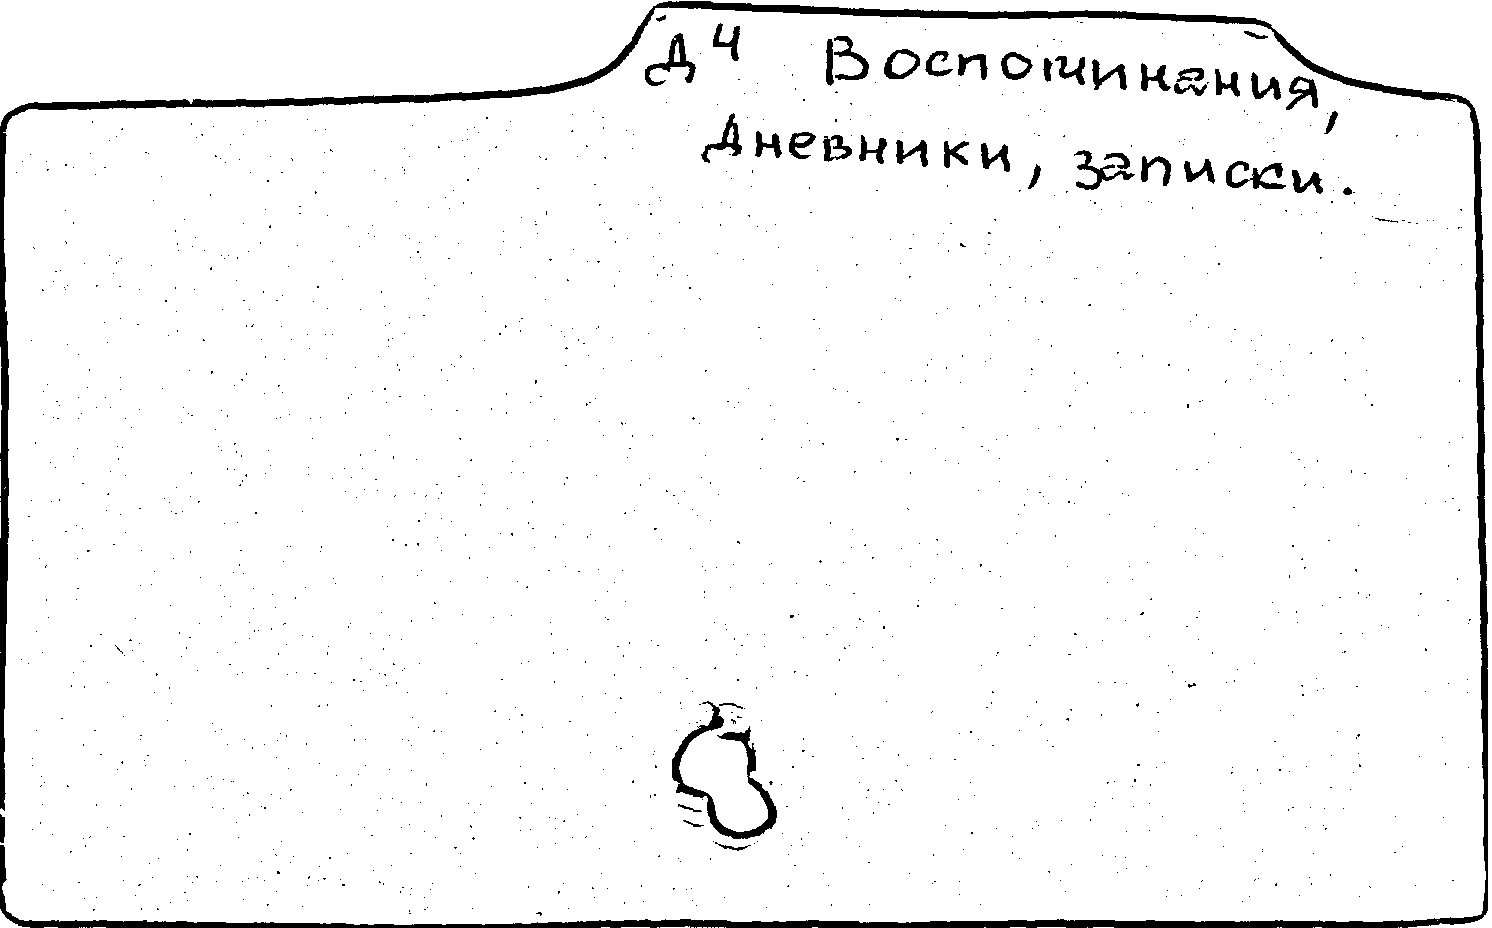 Д4 Воспоминания,
Дневники, записки.